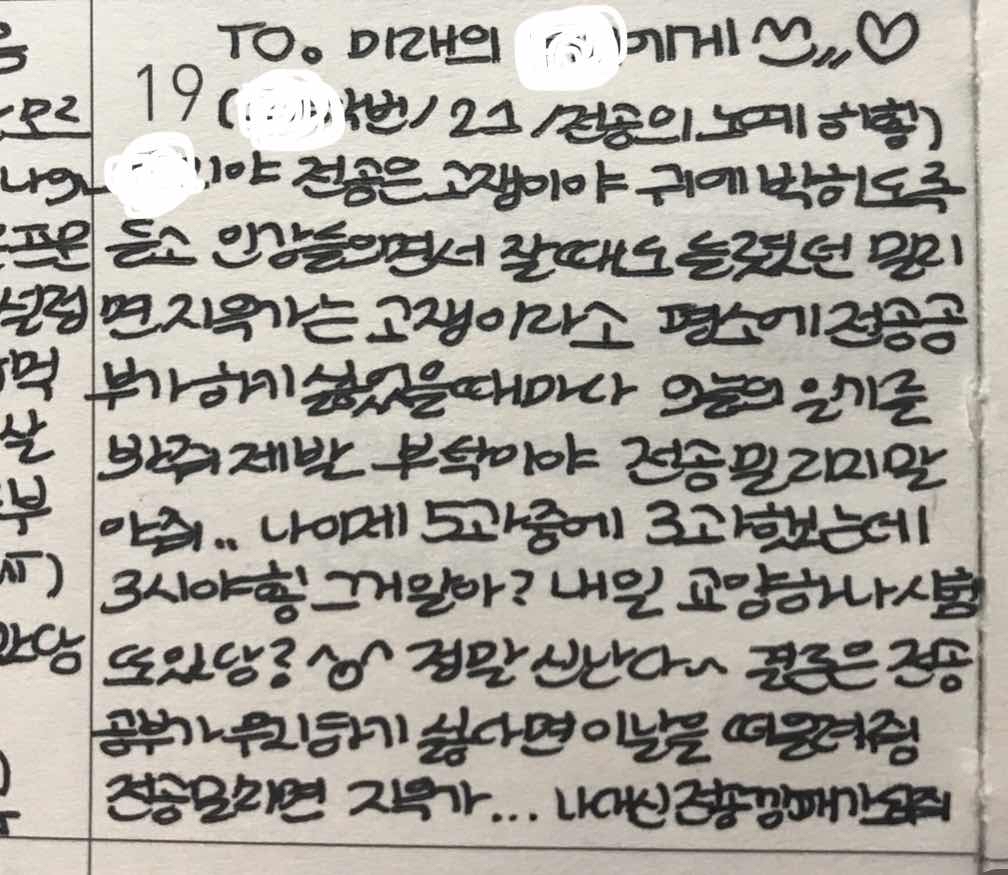 TO. 미래의 에게
19 (학번/21/전공의 노예 히힣)
이야 전공은 고쟁이야 귀에 박히도록
듣고 인강들으면서 잘때도 들렸던 밀리
면 지옥가는 고쟁이라고 평소에 전공공
부가 하기 싫었을때마다 오늘의 일기를
봐줘 제발 부탁이야 전공 밀리지말
아줘.. 나이제 5과중에 3과했는데
3시야힣 그거알아? 내일 교양하나시험
또있당? ^상^ 정말 신난다~ 결론은 전공
공부가 무지하기 싫다면 이날을 떠올려줭
전공밀리면 지옥가... 나대신 전공깡패가되줘